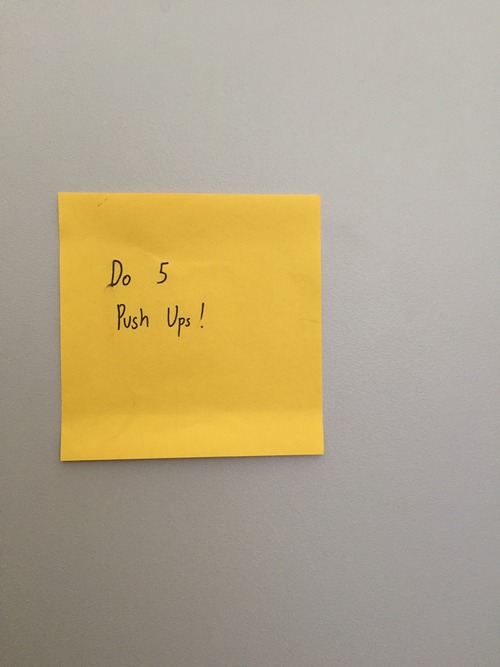 Do 5
Push Ups!